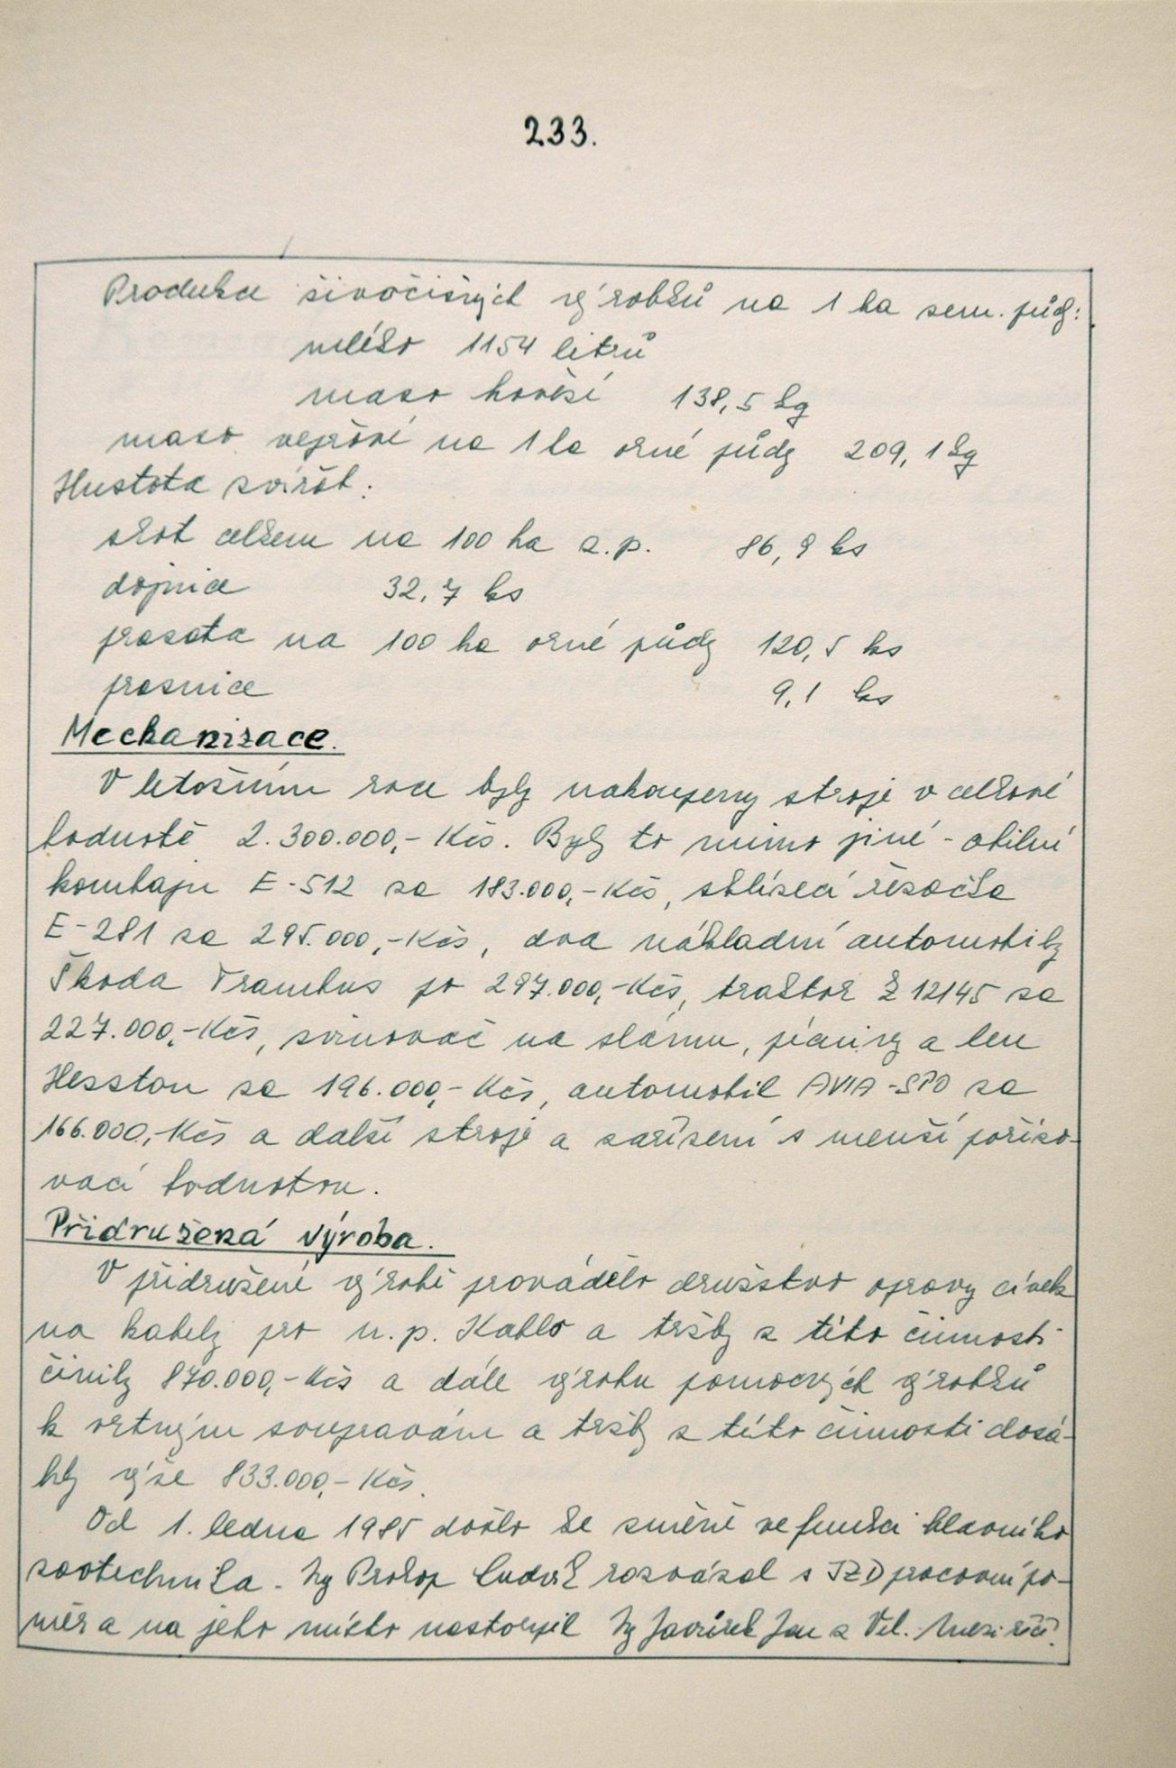 233.
Produkce živočišných výrobků na 1 ha zem. půdy:
mléko 1154 litrů
maso hovězí 138,5 kg
maso vepřové na 1 ha orné půdy 209,1 kg
Hustota zvířat:
skot celkem na 100 ha z.p. 86,9 ks
dojnice 32,7 ks
prasata na 100 ha orné půdy 120,5 ks
prasnice 9,1 ks
Mechanizace.
V letošním roce byly nakoupeny stroje v celkové
hodnotě 2.300.000,- Kčs. Byly to mimo jiné - obilní
kombajn E-512 za 183.000,- Kčs, sklízecí řezačka
E-281 za 295.000,- Kčs, dva nákladní automobily
Škoda Trambus po 297.000,- Kčs, traktor Z 12145 za
227.000,- Kčs, svinovač na slámu, pícniny a len
Hesston za 196.000,- Kčs, automobil AVIA-SPO za
166.000,- Kčs a další stroje a zařízení s menší pořizo-
vací hodnotou.
Přidružená výroba.
V přidružené výrobě provádělo družstvo opravy cívek
na kabely pro n.p. Kablo a tržby z této činnosti
činily 870.000,- Kčs a dále výrobu pomocných výrobků
k vrtným soupravám a tržby z této činnosti dosá-
hly výše 833.000,- Kčs.
Od 1. ledna 1985 došlo ke změně ve funkci hlavního
zootechnika. Ing Prokop Ludvík rozvázal s JZD pracovní po-
měr a na jeho místo nastoupil Ing Javůrek Jan z Vel. Meziříčí.